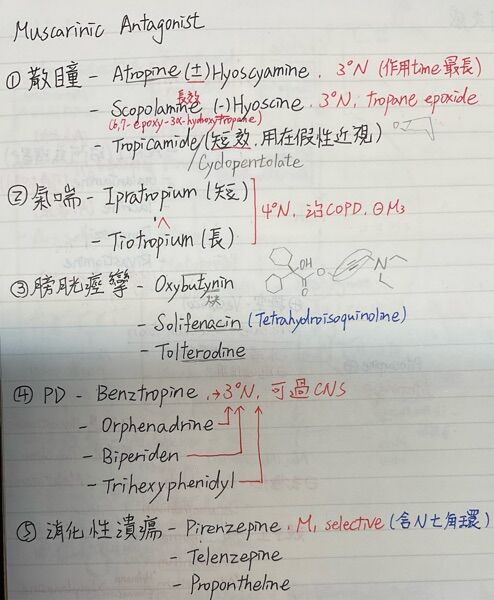 Muscarinic Antagonist
① 散瞳 - Atropine (±) Hyoscyamine. 3°N (作用time最長)
長效
- Scopolamine (-) Hyoscine. 3°N, tropane epoxide
(6,7-epoxy-3α-hydroxytropane)
- Tropicamide (短效, 用在假性近視)
/ Cyclopentolate
② 氣喘 - Ipratropium (短)
4°N, 治COPD, ⊖M3
- Tiotropium (長)
OH
O
N
③ 膀胱痙攣 - Oxybutynin
炔
- Solifenacin (Tetrahydroisoquinoline)
- Tolterodine
④ PD - Benztropine → 3°N, 可過CNS
- Orphenadrine
- Biperiden
- Trihexyphenidyl
⑤ 消化性潰瘍 - Pirenzepine. M1 selective (含N七角環)
- Telenzepine
- Propontheline